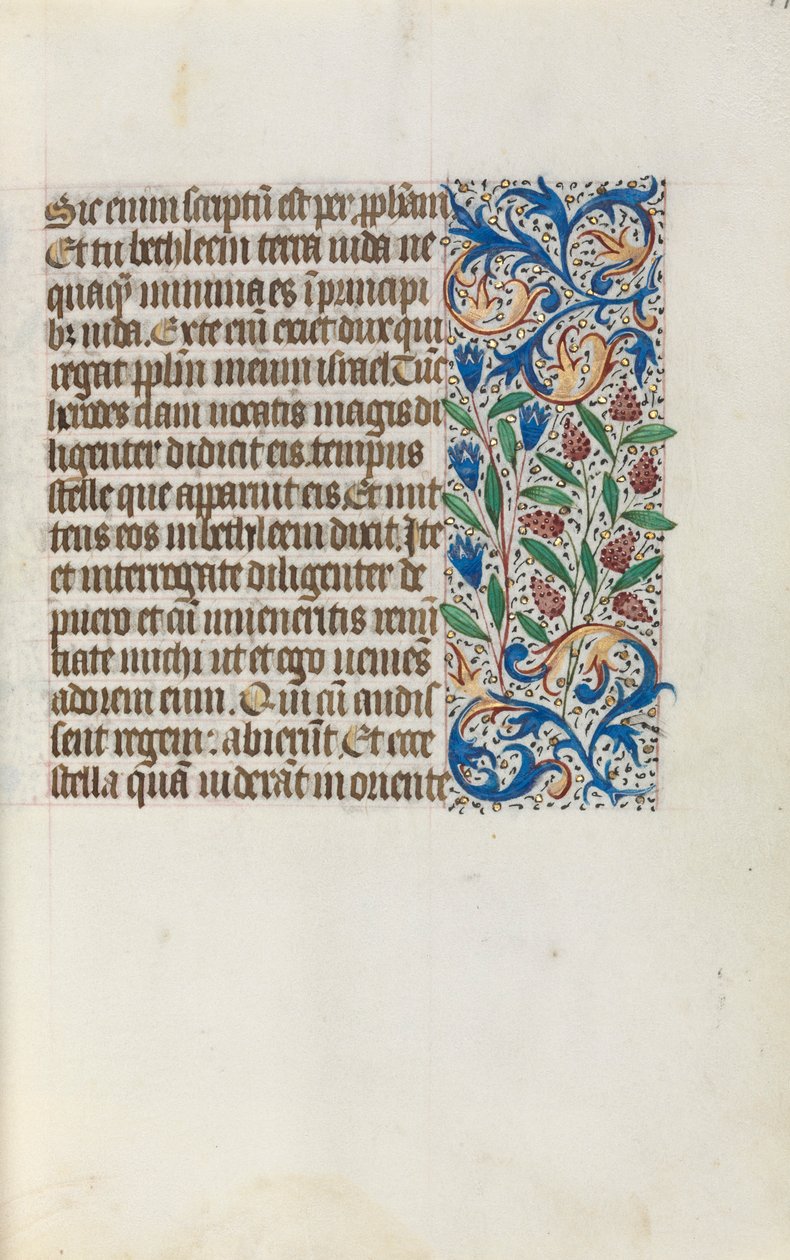 Sic enim scriptū est per pphetam.
Et tu bethleem terra iuda ne
quaqꝫ minima es ī principi
bꝫ iuda. Ex te enī exiet dux qui
regat pplm̄ meum israel Tūc
herodes clam uocatis magis di
ligenter didicit eis tempus
stelle que apparuit eis. Et mit
tens eos in bethleem dixit. Ite
et interrogate diligenter de
puero et cū inueneritis renū
tiate michi ut et ego ueniēs
adorem eum. Qui cū audis
sent regem: abierūt. Et ecce
stella quā uiderāt in oriente